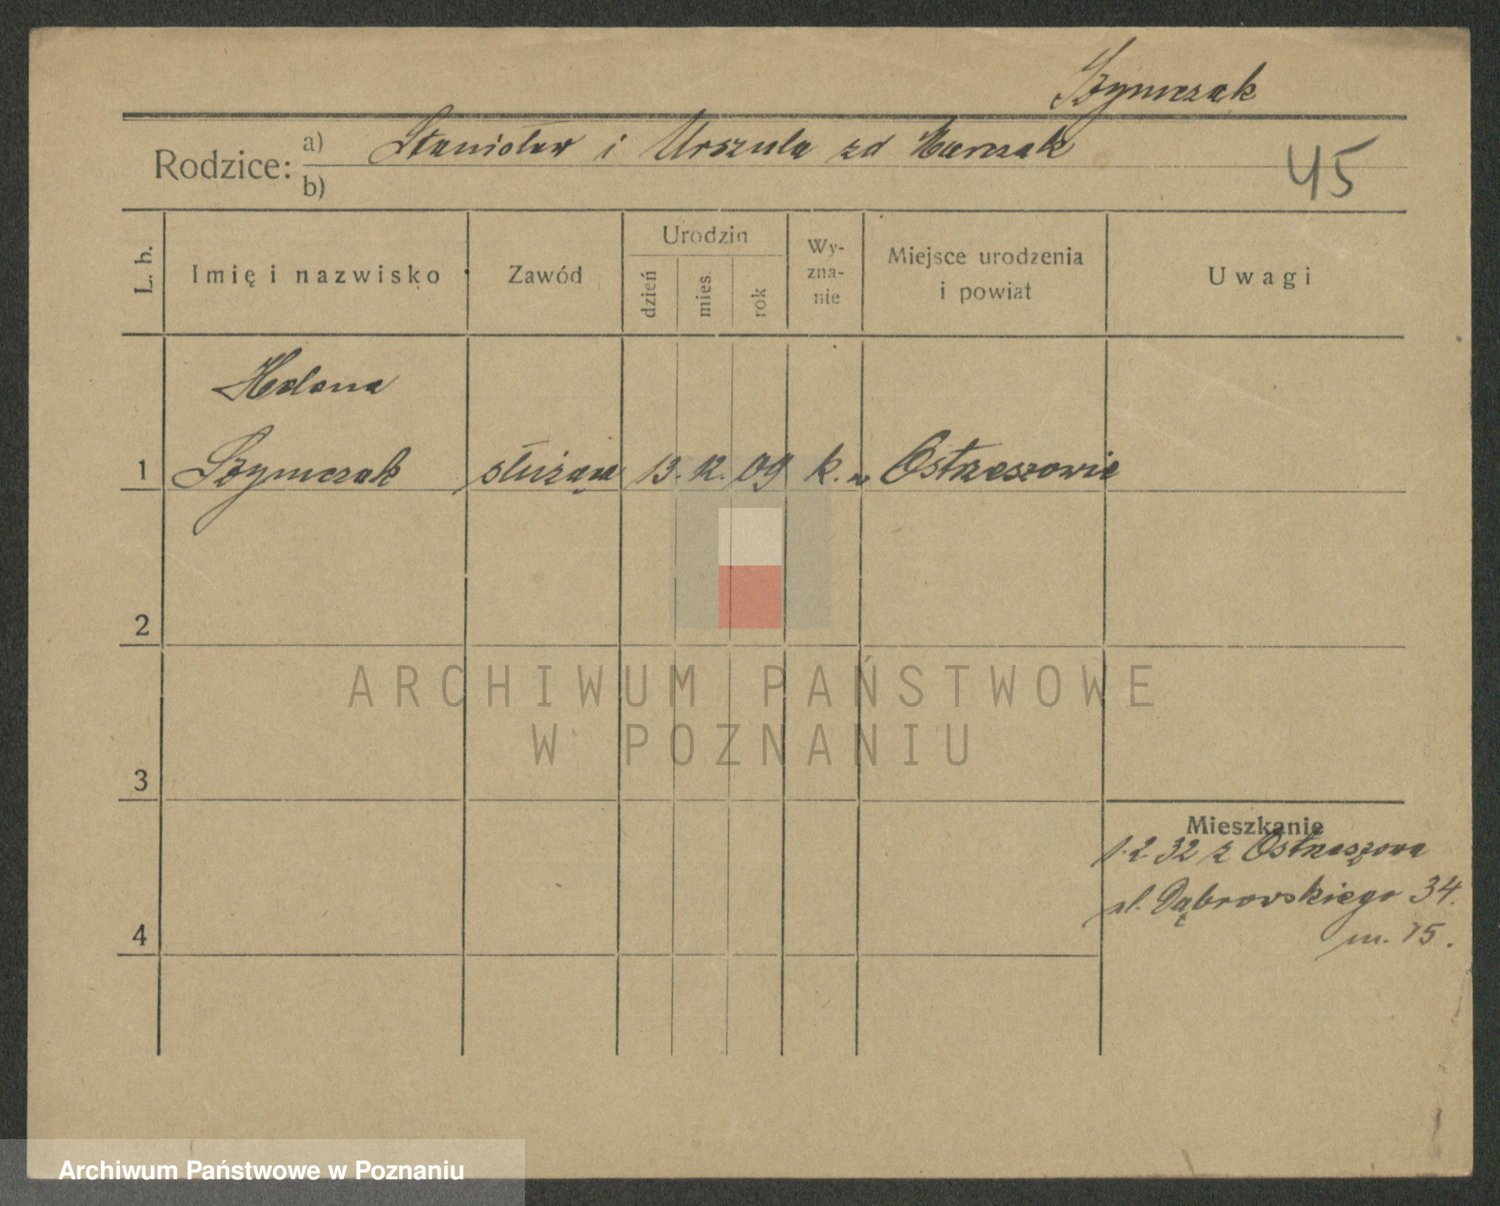 Szymczak
Rodzice: a) Stanisław i Urszula zd
b)
45
L. b.
Imię i nazwisko
Zawód
Urodzin
dzień
mies.
rok
Wy-
zna-
nie
Miejsce urodzenia
i powiat
Uwagi
Helena
1 Szymczak służąca 13. 12. 09 k. w Ostrzeszowie
2
ARCHIWUM PAŃSTWOWE
W POZNANIU
3
Mieszkanie
1.2.32 z Ostrzeszowa
ul. Dąbrowskiego 34.
m. 15.
4
Archiwum Państwowe w Poznaniu